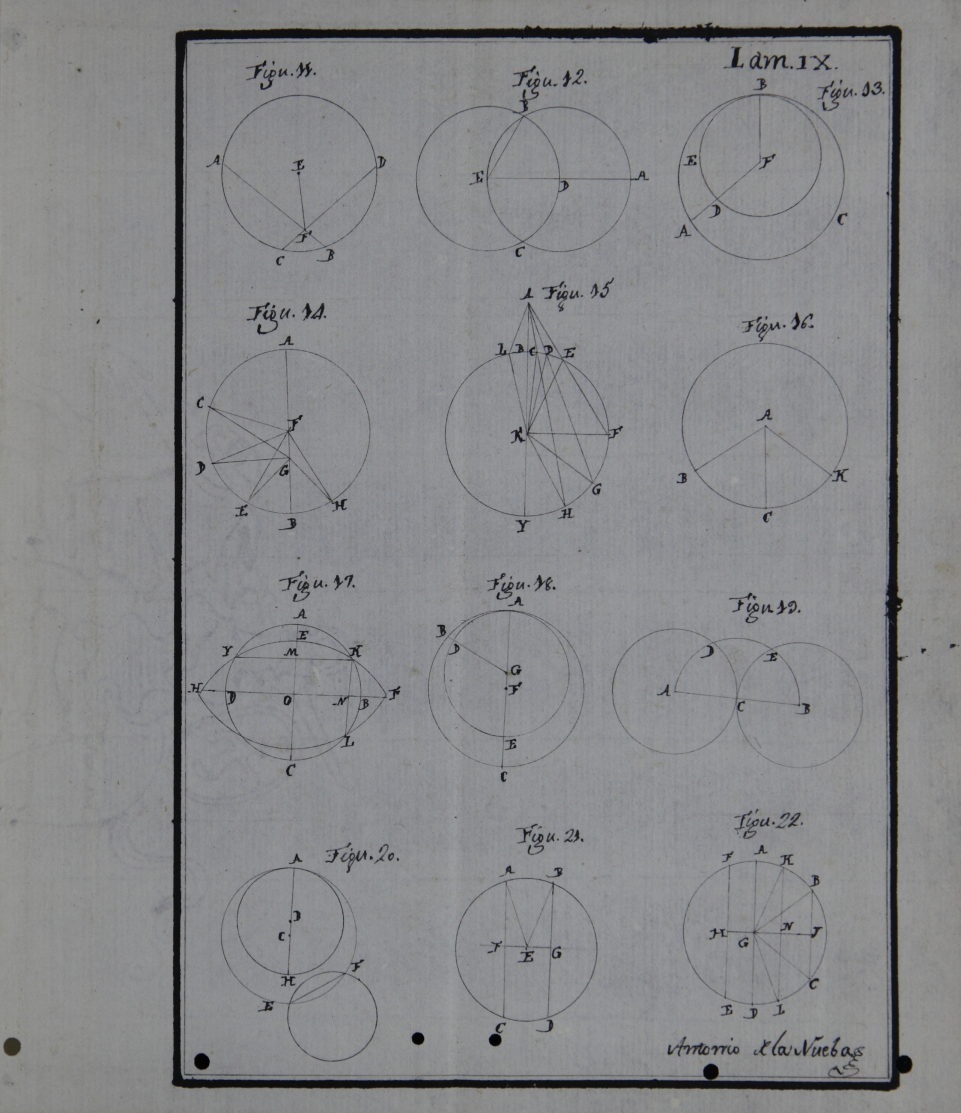 Lam. IX.
Figu. 11.
A
E
D
F
C
B
Figu. 12.
B
E
D
A
C
Figu. 13.
B
E
F
D
A
C
Figu. 14.
A
C
F
D
G
E
B
H
A
Figu. 15
L B C D E
K
F
G
H
Y
Figu. 16.
A
B
K
C
Figu. 17.
A
E
Y
M
K
H
D
O
N
B
F
L
C
Figu. 18.
A
B
D
G
F
E
C
Figu 19.
D
E
A
C
B
Figu. 20.
A
D
C
H
F
E
Figu. 21.
A
B
F
E
G
C
D
Figu. 22.
F
A
K
B
H
G
N
J
C
E
D
L
Antonio de la Nuebas